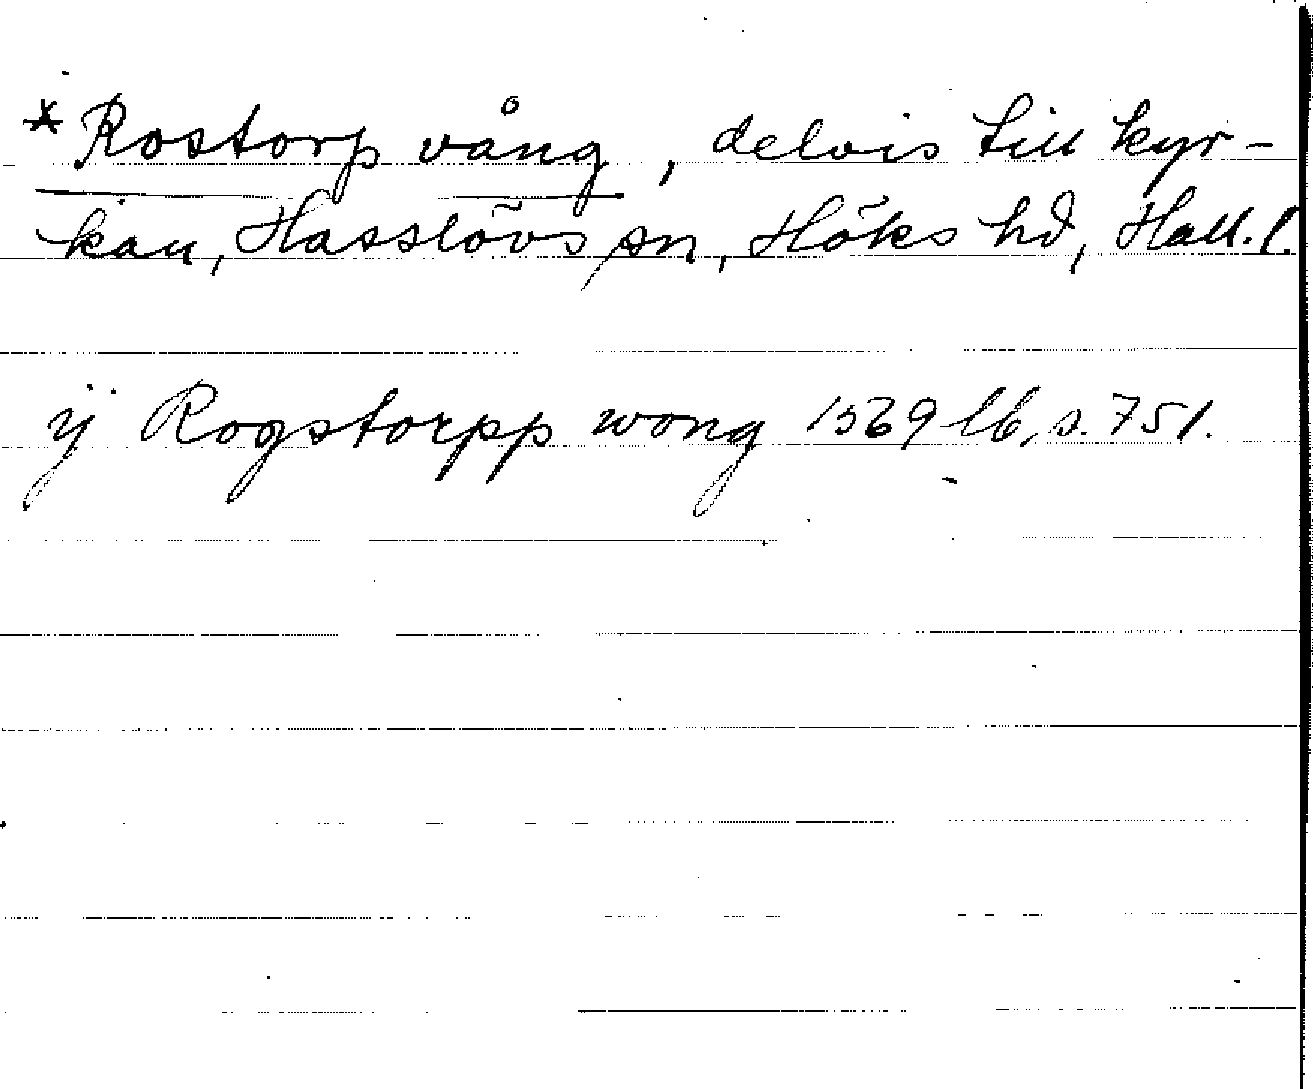 * Rostorp vång, delvis till kyr-
kan, Hasslövs sn, Höks hd, Hall. l.
ÿ Rogstorpp wong 1569 lb, s. 751.